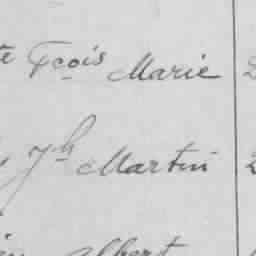 te Fçois Marie
Jh Martin
Albert